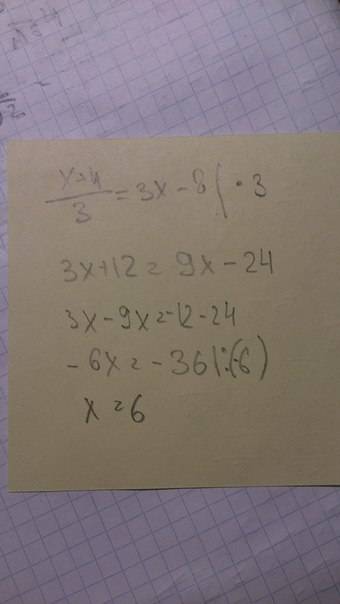 x+4
3 = 3x - 8 | · 3
3x+12 = 9x - 24
3x - 9x = -12 - 24
- 6x = - 36 | : (-6)
x = 6